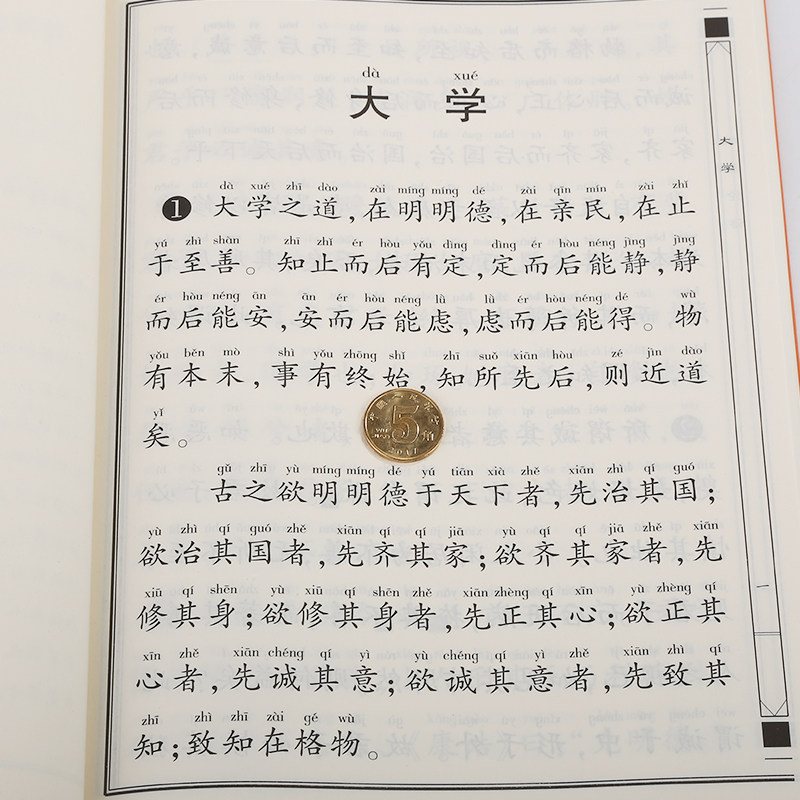 dà xué
大 学
dà xué zhī dào zài míng míng dé zài qīn mín zài zhǐ
❶ 大学之道,在明明德,在亲民,在止
yú zhì shàn zhī zhǐ ér hòu yǒu dìng dìng ér hòu néng jìng jìng
于至善。知止而后有定,定而后能静,静
ér hòu néng ān ān ér hòu néng lǜ lǜ ér hòu néng dé wù
而后能安,安而后能虑,虑而后能得。物
yǒu běn mò shì yǒu zhōng shǐ zhī suǒ xiān hòu zé jìn dào
有本末,事有终始,知所先后,则近道
yǐ
矣。
5角
WU JIAO
gǔ zhī yù míng míng dé yú tiān xià zhě xiān zhì qí guó
古之欲明明德于天下者,先治其国;
yù zhì qí guó zhě xiān qí qí jiā yù qí qí jiā zhě xiān
欲治其国者,先齐其家;欲齐其家者,先
xiū qí shēn yù xiū qí shēn zhě xiān zhèng qí xīn yù zhèng qí
修其身;欲修其身者,先正其心;欲正其
xīn zhě xiān chéng qí yì yù chéng qí yì zhě xiān zhì qí
心者,先诚其意;欲诚其意者,先致其
zhī zhì zhī zài gé wù
知;致知在格物。
大学
一